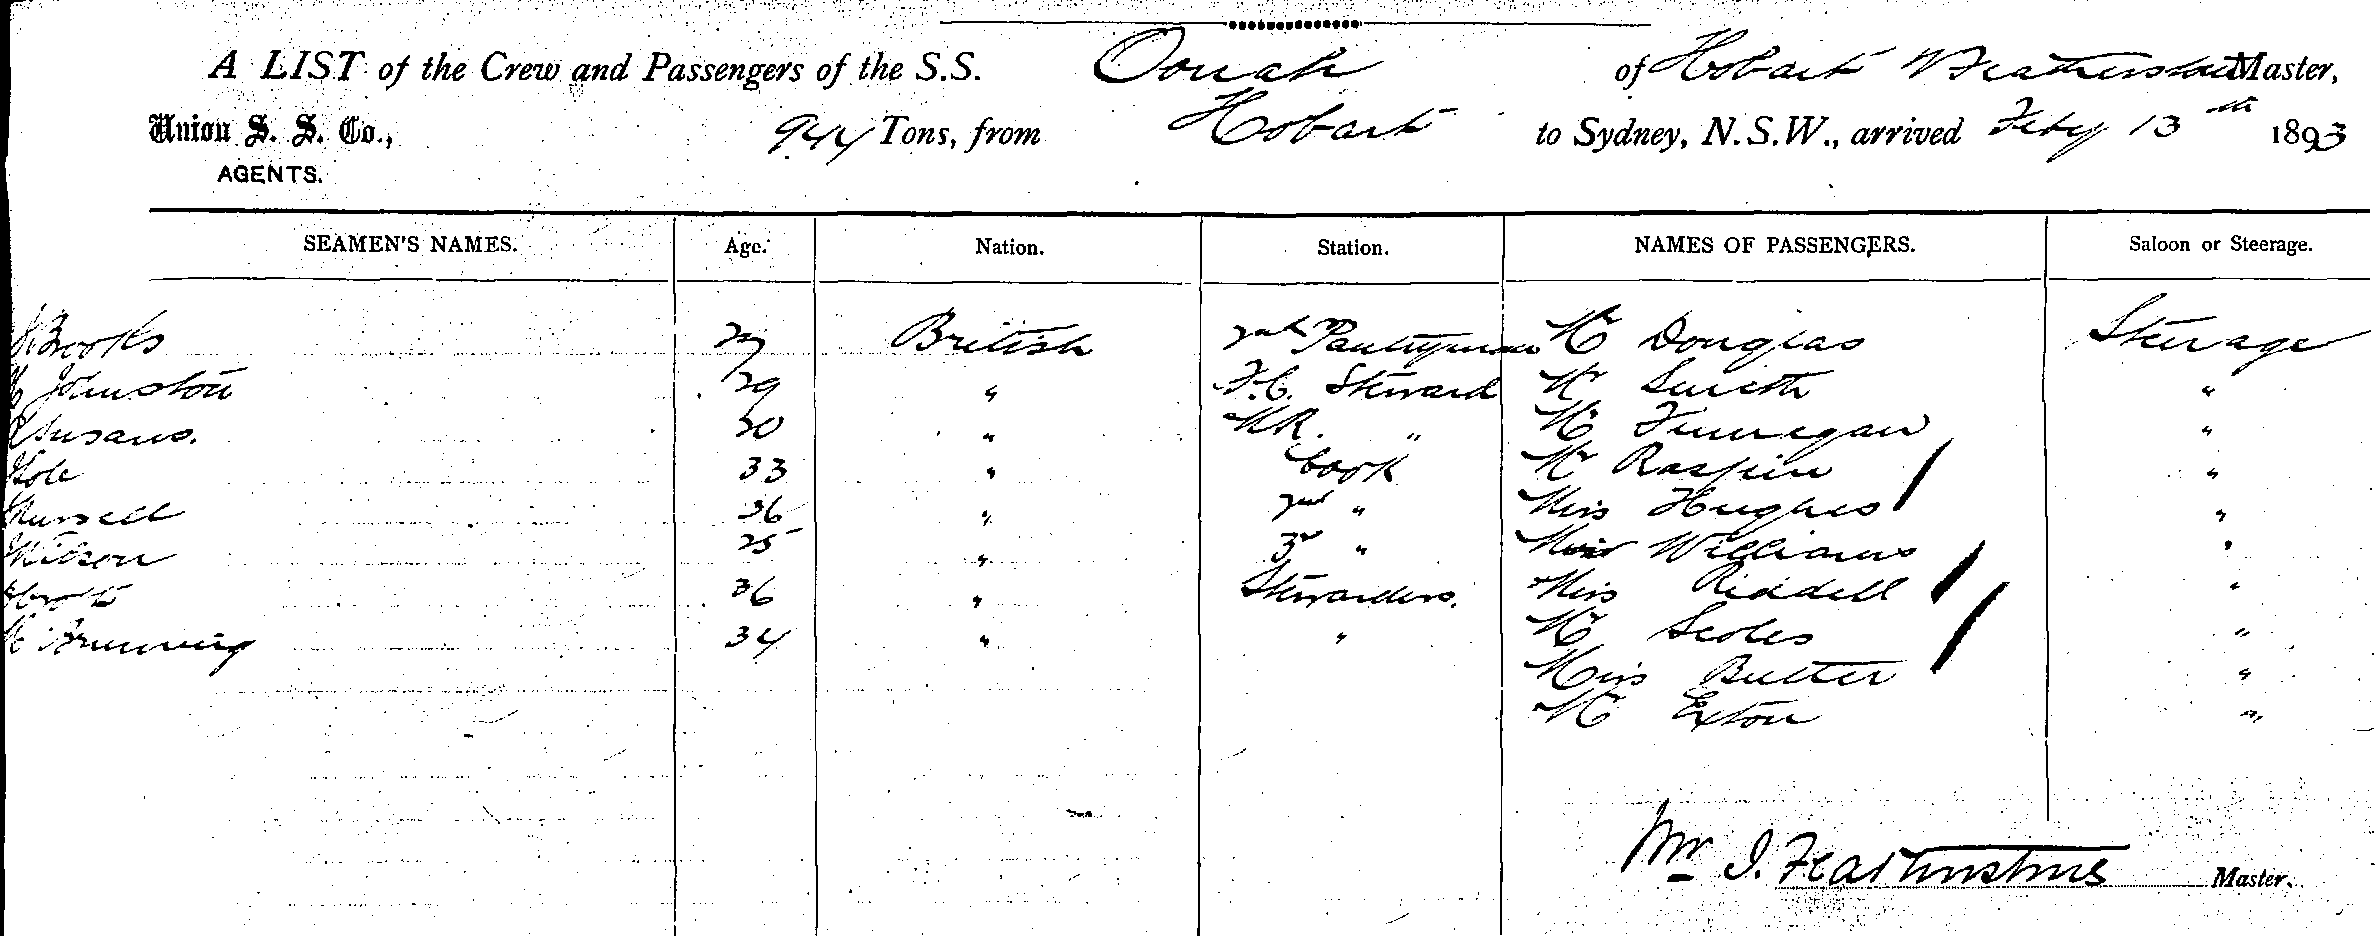 A LIST of the Crew and Passengers of the S.S. Oonah of Hobart Featherstone Master,
Union S. S. Co., 944 Tons, from Hobart to Sydney, N.S.W., arrived Feby 13th 1893
AGENTS.
SEAMEN'S NAMES. Age. Nation. Station. NAMES OF PASSENGERS. Saloon or Steerage.
Brooks British 2nd Pantryman Mr Douglas Steerage
Johnston 29 " F.C. Steward Mr Smith "
Susans. 20 " " Mr Finnegan "
Hole 33 " Cook Mr Raspin "
Russell 36 " 2nd " Miss Hughes "
Wilson 25 " 3r " Miss Williams "
36 " Stewardess. Miss Riddell "
Brunning 34 " " Mr Scoles "
Miss Butter "
Mr Exton "
Featherstone Master.